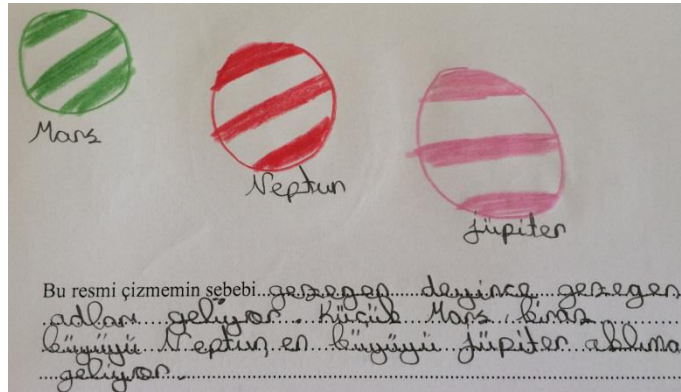 Mars
Neptun
jüpiter
Bu resmi çizmemin sebebi gezegen deyince gezegen
adları geliyor. Küçük Mars, biraz
büyüyü Neptun, en büyüyü jüpiter aklıma
geliyor.